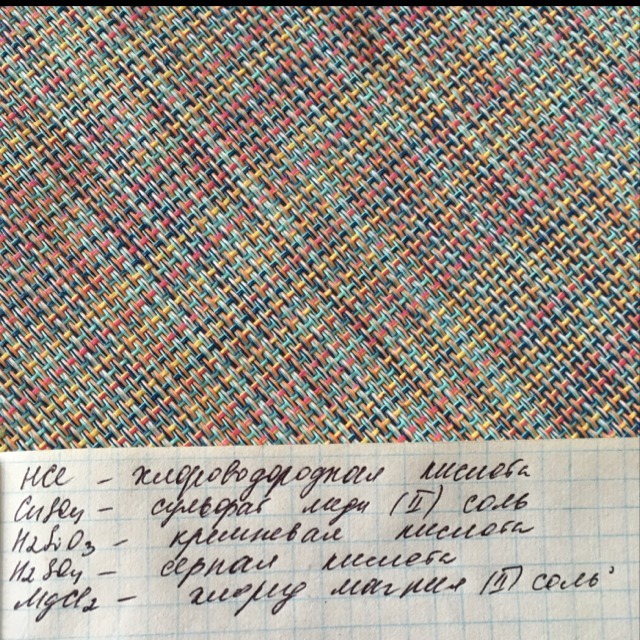 HCl – хлороводородная кислота
CuSO4 – сульфат меди (II) соль
H2SiO3 – кремневая кислота
H2SO4 – серная кислота
MgCl2 – хлорид магния (II) соль